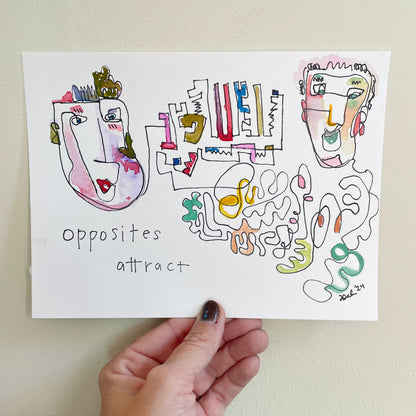 opposites
attract